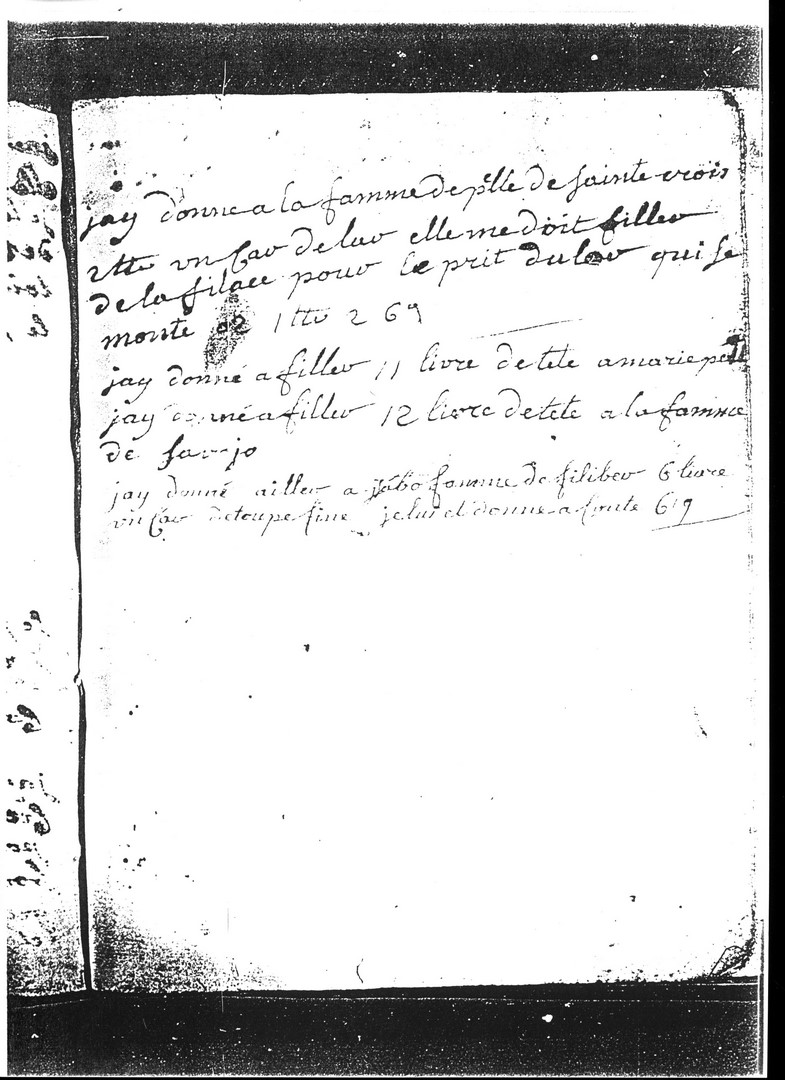 jay donne a la famme de pslle de sainte crois
2tt un car de lav elle me doit filler
de la filace pour le prit du lav qui se
monte a 1 tt 2 6 9
jay donné a filler 11 livre de tete a marie
jay donné a filler 12 livre de tete a la famme
de
jay donné a famme de filiber 6 livre
un car detoupe fine je lui et donne a conte 6 19